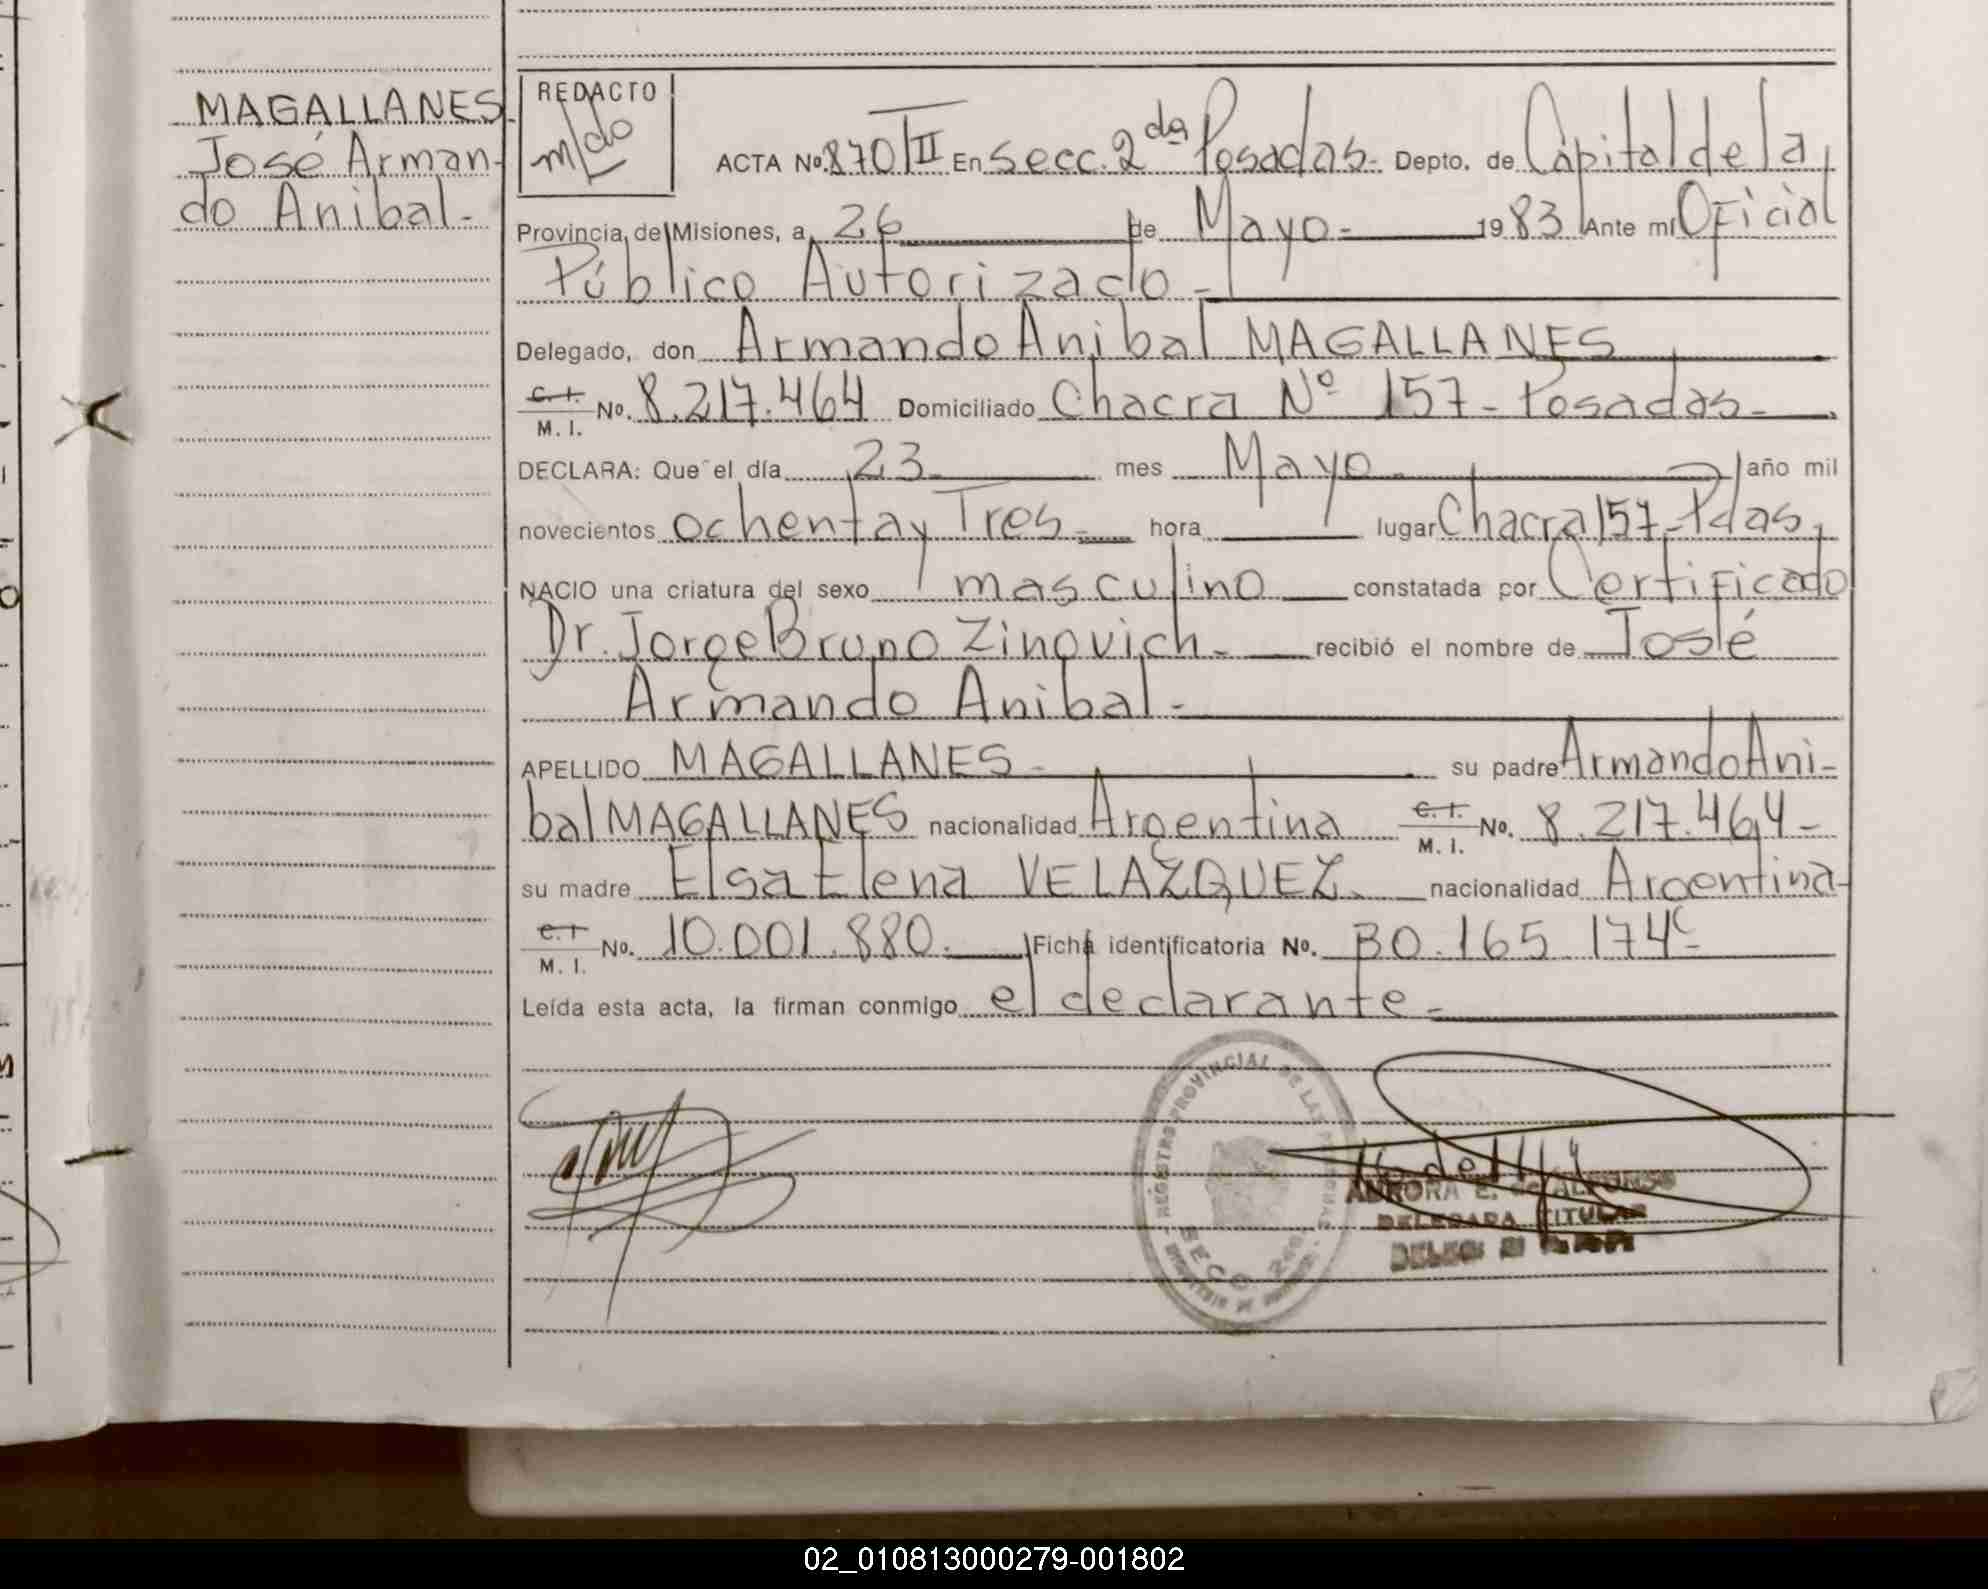 MAGALLANES
José Arman-
do Anibal.-
REDACTO
m/do
ACTA No. 870 T II En Secc. 2da Posadas.- Depto. de Capital de la
Provincia de Misiones, a 26 de Mayo.- 1983 Ante mí Oficial
Público Autorizado.-
Delegado, don Armando Anibal MAGALLANES
C. I. M. I. No. 8.217.464 Domiciliado Chacra Nº 157 - Posadas.-
DECLARA: Que el día 23 mes Mayo.- año mil
novecientos ochenta y Tres.- hora lugar Chacra 157-Pdas,
NACIO una criatura del sexo masculino constatada por Certificado
Dr. Jorge Bruno Zinovich.- recibió el nombre de José
Armando Anibal.-
APELLIDO MAGALLANES.- su padre Armando Ani-
bal MAGALLANES nacionalidad Argentina C. I. M. I. No. 8.217.464-
su madre Elsa Elena VELAZQUEZ.- nacionalidad Argentina-
C. I M. I. No. 10.001.880.- Ficha identificatoria No. BO.165.174c-
Leída esta acta, la firman conmigo el declarante.-
REGISTRO PROVINCIAL DE LAS PERSONAS
SECC. 2da.
AURORA E. de ALFONSO
DELEGADA TITULAR
02_010813000279-001802